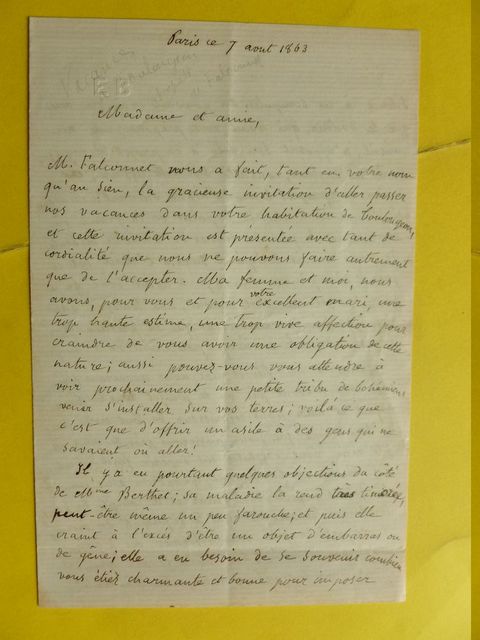 Paris ce 7 aout 1863
Vacances
EB
M. Falconnet
Madame et amie,
M. Falconnet nous a fait, tant en votre nom
qu'au sien, la gracieuse invitation d'aller passer
nos vacances dans votre habitation de
et cette invitation est présentée avec tant de
cordialité que nous ne pouvons faire autrement
que de l'accepter. Ma femme et moi, nous
avons, pour vous et pour votre excellent mari, une
trop haute estime, une trop vive affection pour
craindre de vous avoir une obligation de cette
nature; aussi pouvez-vous vous attendre à
voir prochainement une petite tribu de bohémiens
venir s'installer sur vos terres; voilà ce que
c'est que d'offrir un asile à des gens qui ne
savaient où aller!
Il y a eu pourtant quelques objections du côté
de Mme Berthet; sa maladie la rend très timorée,
peut-être même un peu farouche; et puis elle
craint à l'excès d'être un objet d'embarras ou
de gêne; elle a eu besoin de se souvenir combien
vous étiez charmante et bonne pour imposer